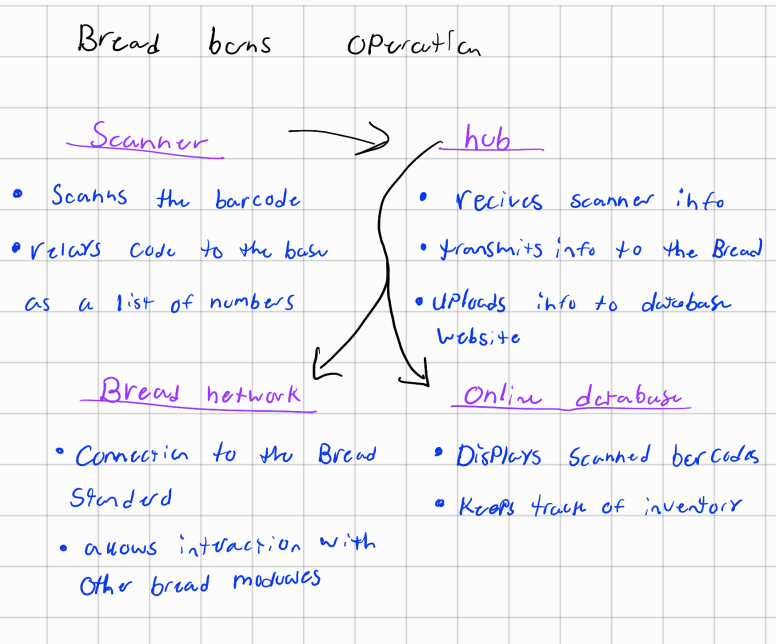 Bread bans operation
Scanner
hub
• Scanns the barcode
• relays code to the base
as a list of numbers
• recives scanner info
• transmits info to the Bread
• uploads info to database
website
Bread network
• Connection to the Bread
Standerd
• allows intraction with
Other bread moduales
Online database
• Displays scanned barcodes
• Keeps track of inventory